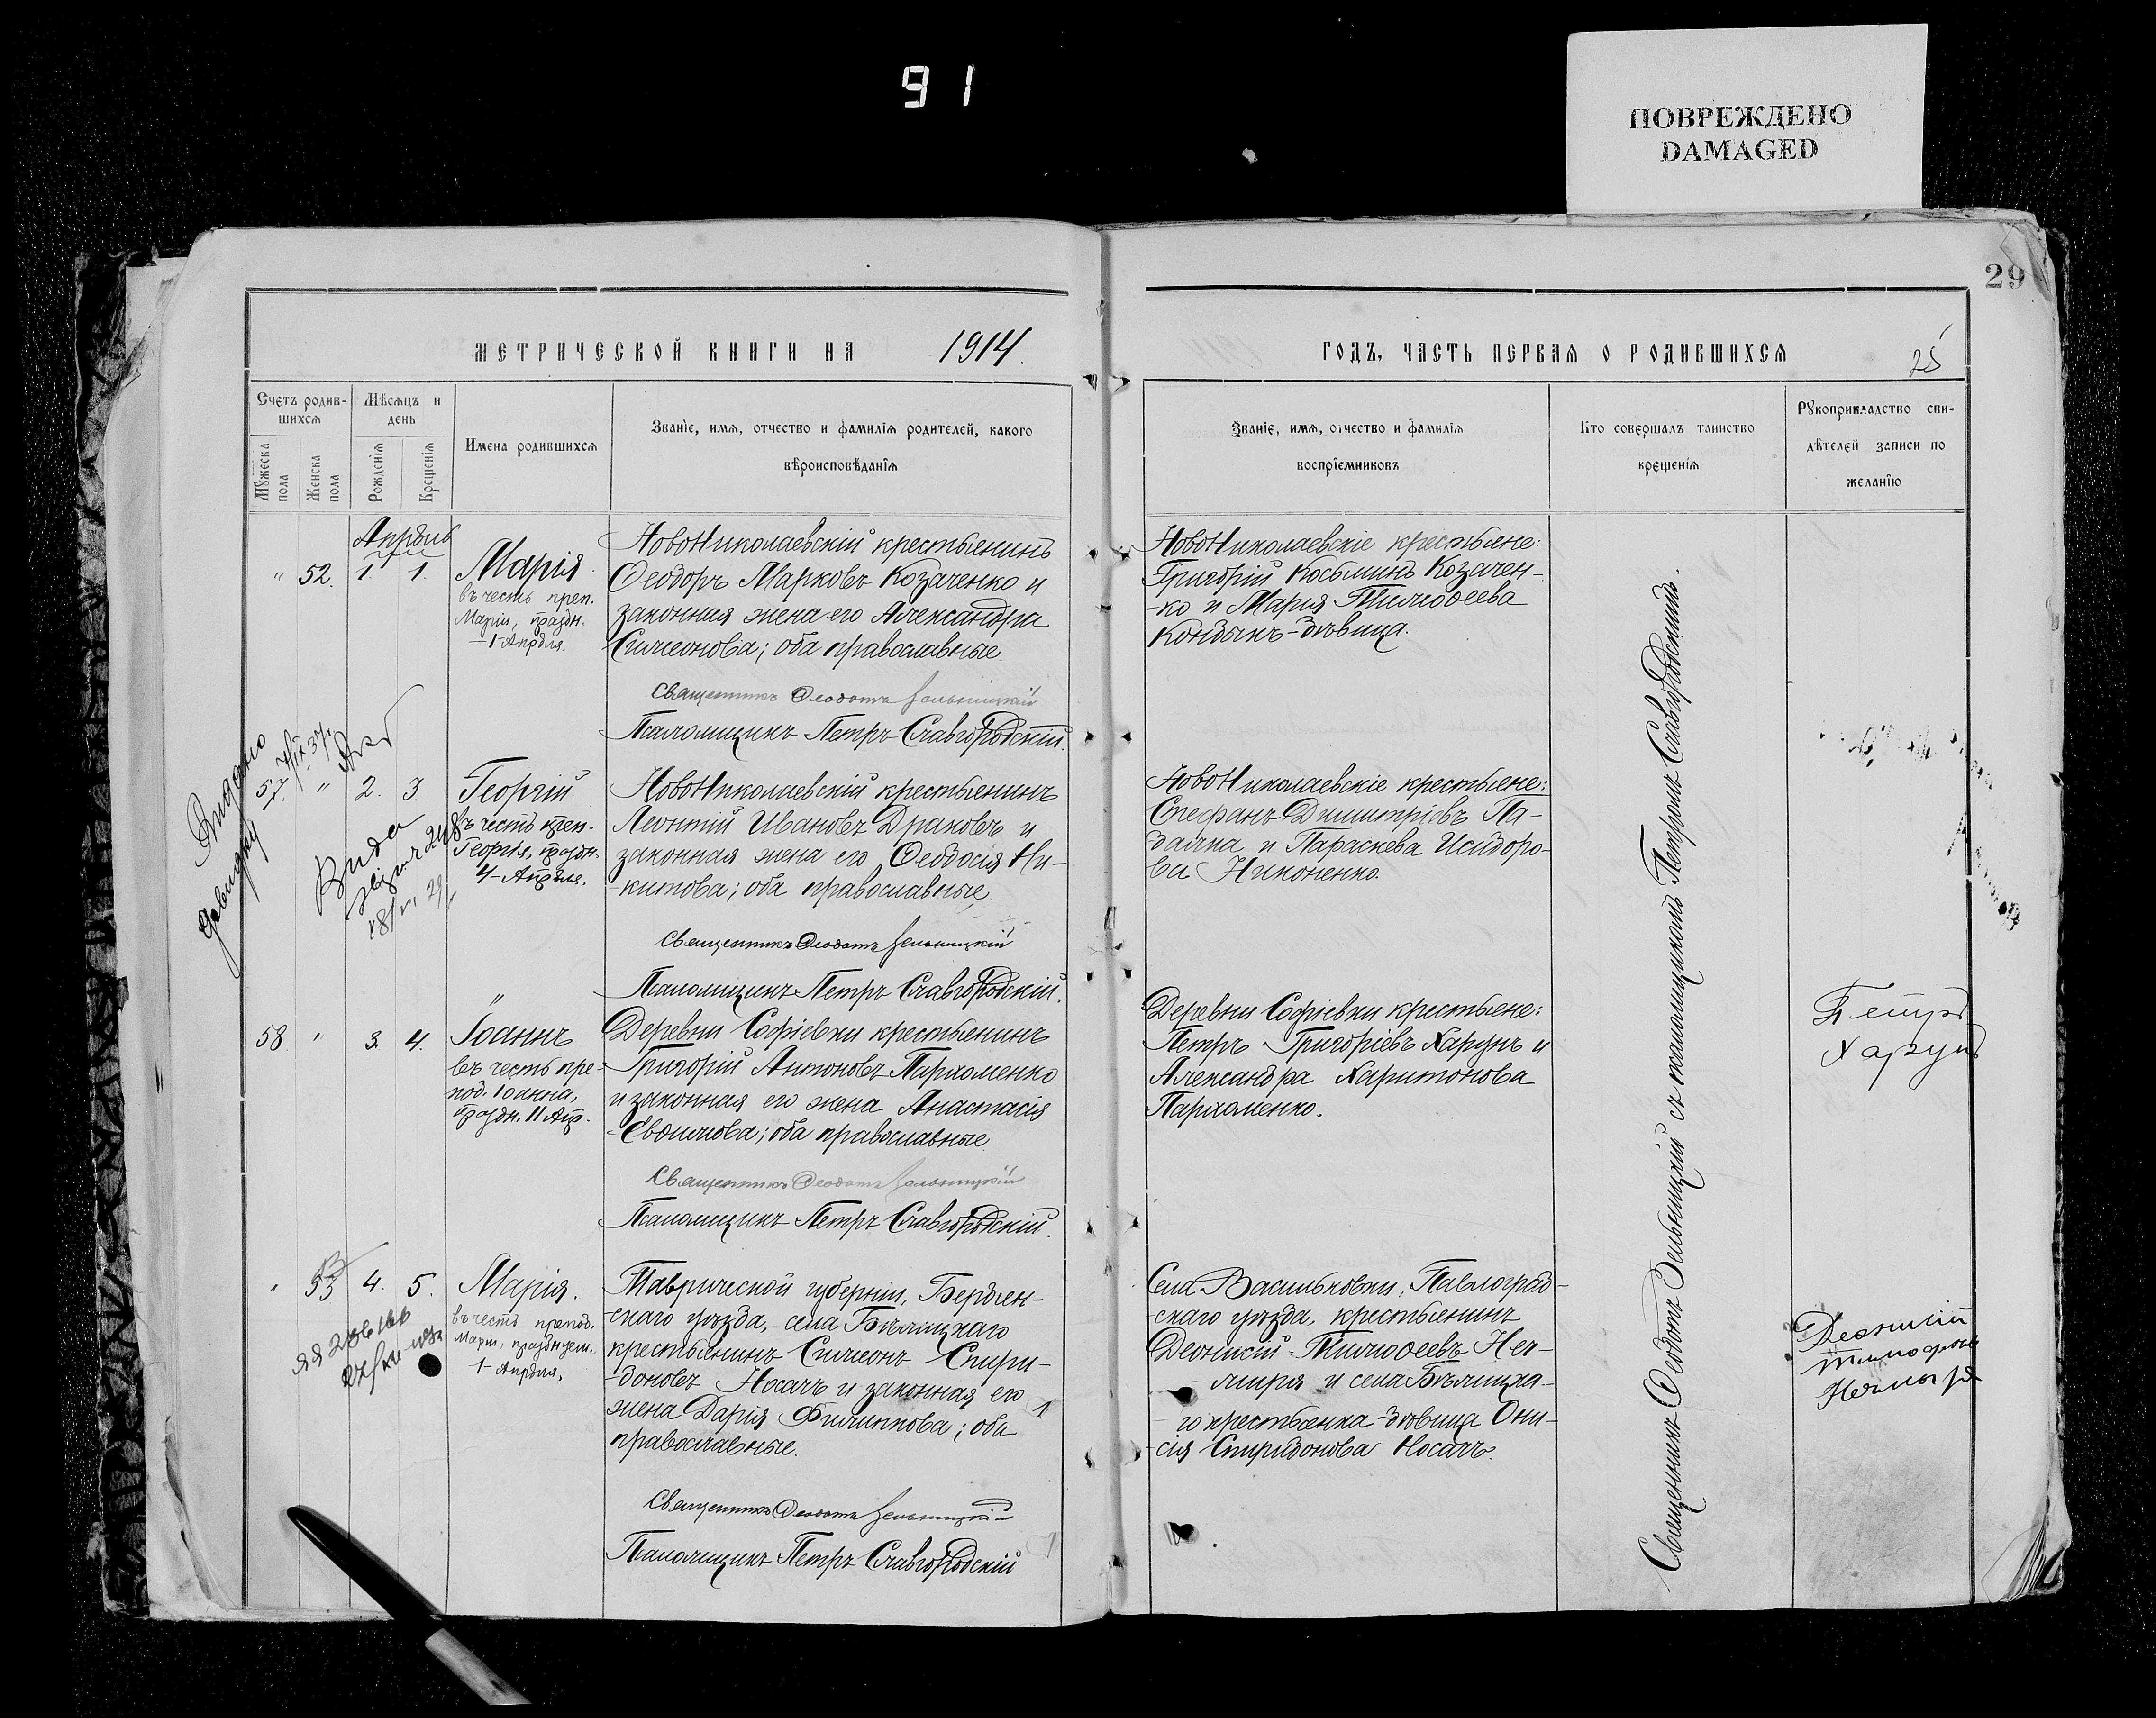 91
ПОВРЕЖДЕНО
DAMAGED
29
МЕТРИЧЕСКОЙ КНИГИ НА 1914.
ГОДЪ, ЧАСТЬ ПЕРВАЯ О РОДИВШИХСЯ
25
Счетъ родив-
шихся
Мужеска
пола
Женска
пола
Мѣсяцъ и
день
Рожденія
Крещенія
Имена родившихся
Званіе, имя, отчество и фамилія родителей, какого
вѣроисповѣданія
Званіе, имя, отчество и фамилія
воспріемниковъ
Кто совершалъ таинство
крещенія
Рукоприкладство сви-
дѣтелей записи по
желанію
Апрѣль
" 52. 1. 1.
Марія
въ честь преп.
Маріи, праздн.
1 Апрѣля.
НовоНиколаевскій крестьянинъ
Ѳеодоръ Марковъ Козаченко и
законная жена его Александра
Симеонова; оба православные.
Священникъ Ѳеодотъ Зельницкій
Псаломщикъ Петръ Славгородскій.
НовоНиколаевскіе крестьяне:
Григорій Косьминъ Козачен-
-ко и Марія Тимоѳеева
Кондыкъ-дѣвица.
57. " 2. 3.
Георгій
въ честь преп.
Георгія, праздн.
4 Апрѣля.
НовоНиколаевскій крестьянинъ
Леонтій Ивановъ Драковъ и
законная жена его Ѳеодосія Ни-
-китова; оба православные
Священникъ Ѳеодотъ Зельницкій
Псаломщикъ Петръ Славгородскій.
НовоНиколаевскіе крестьяне:
Стефанъ Димитріевъ Па-
далка и Параскева Исидоро-
ва Никоненко.
Выдано
58 " 3. 4.
Іоаннъ
въ честь пре-
под. Іоанна,
праздн. 11 Апр.
Деревни Софіевки крестьянинъ
Григорій Антоновъ Пархоменко
и законная его жена Анастасія
Евфимова; оба православные
Священникъ Ѳеодотъ Зельницкій
Псаломщикъ Петръ Славгородскій.
Деревни Софіевки крестьяне:
Петръ Григоріевъ Харунъ и
Александра Харитонова
Пархоменко.
Петръ
Харунъ
" 53 4. 5.
Марія.
въ честь препод.
Маріи, празднуем.
1 Апрѣля.
Таврической губерніи, Бердян-
-скаго уѣзда, села Бѣлицкаго
крестьянинъ Симеонъ Спири-
-доновъ Носачъ и законная его
жена Дарія Филиппова; оба
православные.
Священникъ Ѳеодотъ Зельницкій
Псаломщикъ Петръ Славгородскій
Села Васильковки, Павлоград-
-скаго уѣзда, крестьянинъ
Діонисій Тимоѳеевъ Неч-
-миря и села Бѣлицка-
го крестьянка-дѣвица Они-
-сія Спиридонова Носачъ.
Священникъ Ѳеодотъ Зельницкій съ псаломщикомъ Петромъ Славгородскимъ.